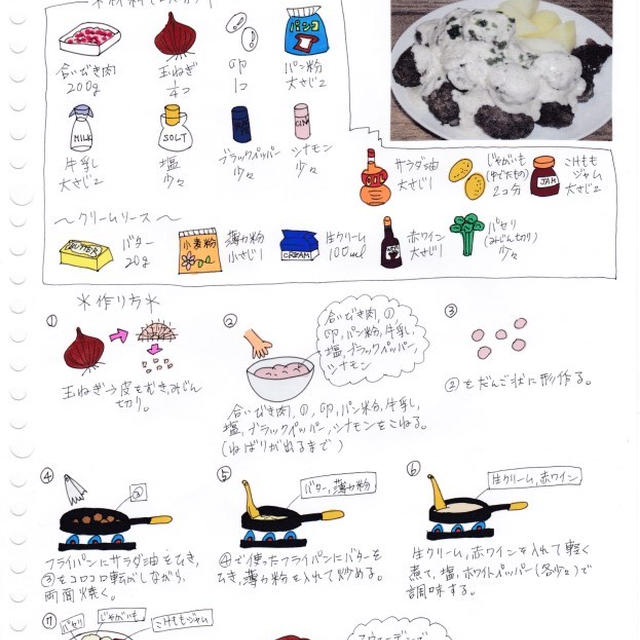 合いびき肉
200g
玉ねぎ
1/4コ
卵
1コ
パンコ
パン粉
大さじ2
MILK
牛乳
大さじ2
SOLT
塩
少々
ブラックペッパー
少々
シナモン
少々
サラダ油
大さじ1
じゃがいも
(ゆでたもの)
2コ分
JAM
こけもも
ジャム
大さじ2
〜クリームソース〜
BUTTER
バター
20g
小麦粉
薄力粉
小さじ1
CREAM
生クリーム
100ml
赤ワイン
大さじ1
パセリ
(みじん切り)
少々
＊作り方＊
①
玉ねぎ→皮をむき、みじん
切り。
②
合いびき肉、①、
卵、パン粉、牛乳、
塩、ブラックペッパー、
シナモン
合いびき肉、①、卵、パン粉、牛乳、
塩、ブラックペッパー、シナモンをこねる。
(ねばりが出るまで)
③
②をだんご状に形作る。
④
③
フライパンにサラダ油をひき、
③をコロコロ転がしながら、
両面焼く。
⑤
バター、薄力粉
④で使ったフライパンにバターを
ひき、薄力粉を入れて炒める。
⑥
生クリーム、赤ワイン
生クリーム、赤ワインを入れて軽く
煮て、塩、ホワイトペッパー(各少々)で
調味する。
⑦
パセリ
じゃがいも
こけももジャム
スウェーデンで